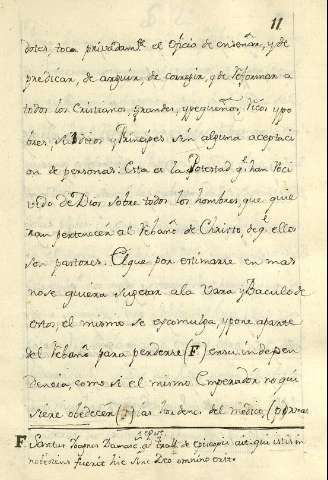 11
dotes, toca privadamte el Oficio de enseñar, y de
predicar, de arguir, de corregir, y de Reformar a
todos los Cristianos, grandes, y pequeños, Ricos y po
bres, Subditos y Principes sin alguna aceptaci
on de personas: Esta es la Potestad q han Reci
vido de Dios sobre todos los hombres, que quie
ran pertenecer al Rebaño de Christo, de q ellos
son pastores. El que por estimarse en mas
no se quiera sugetar a la Vara y Baculo de
estos, el mismo se escomulga, y pone aparte
del Rebaño para perderse (F) en su indepen
dencia, como si el mismo Emperador no qui
siere obedecer a las ordenes del medico,
F Santus Damasc
fuerit hic sine Deo omnino erit